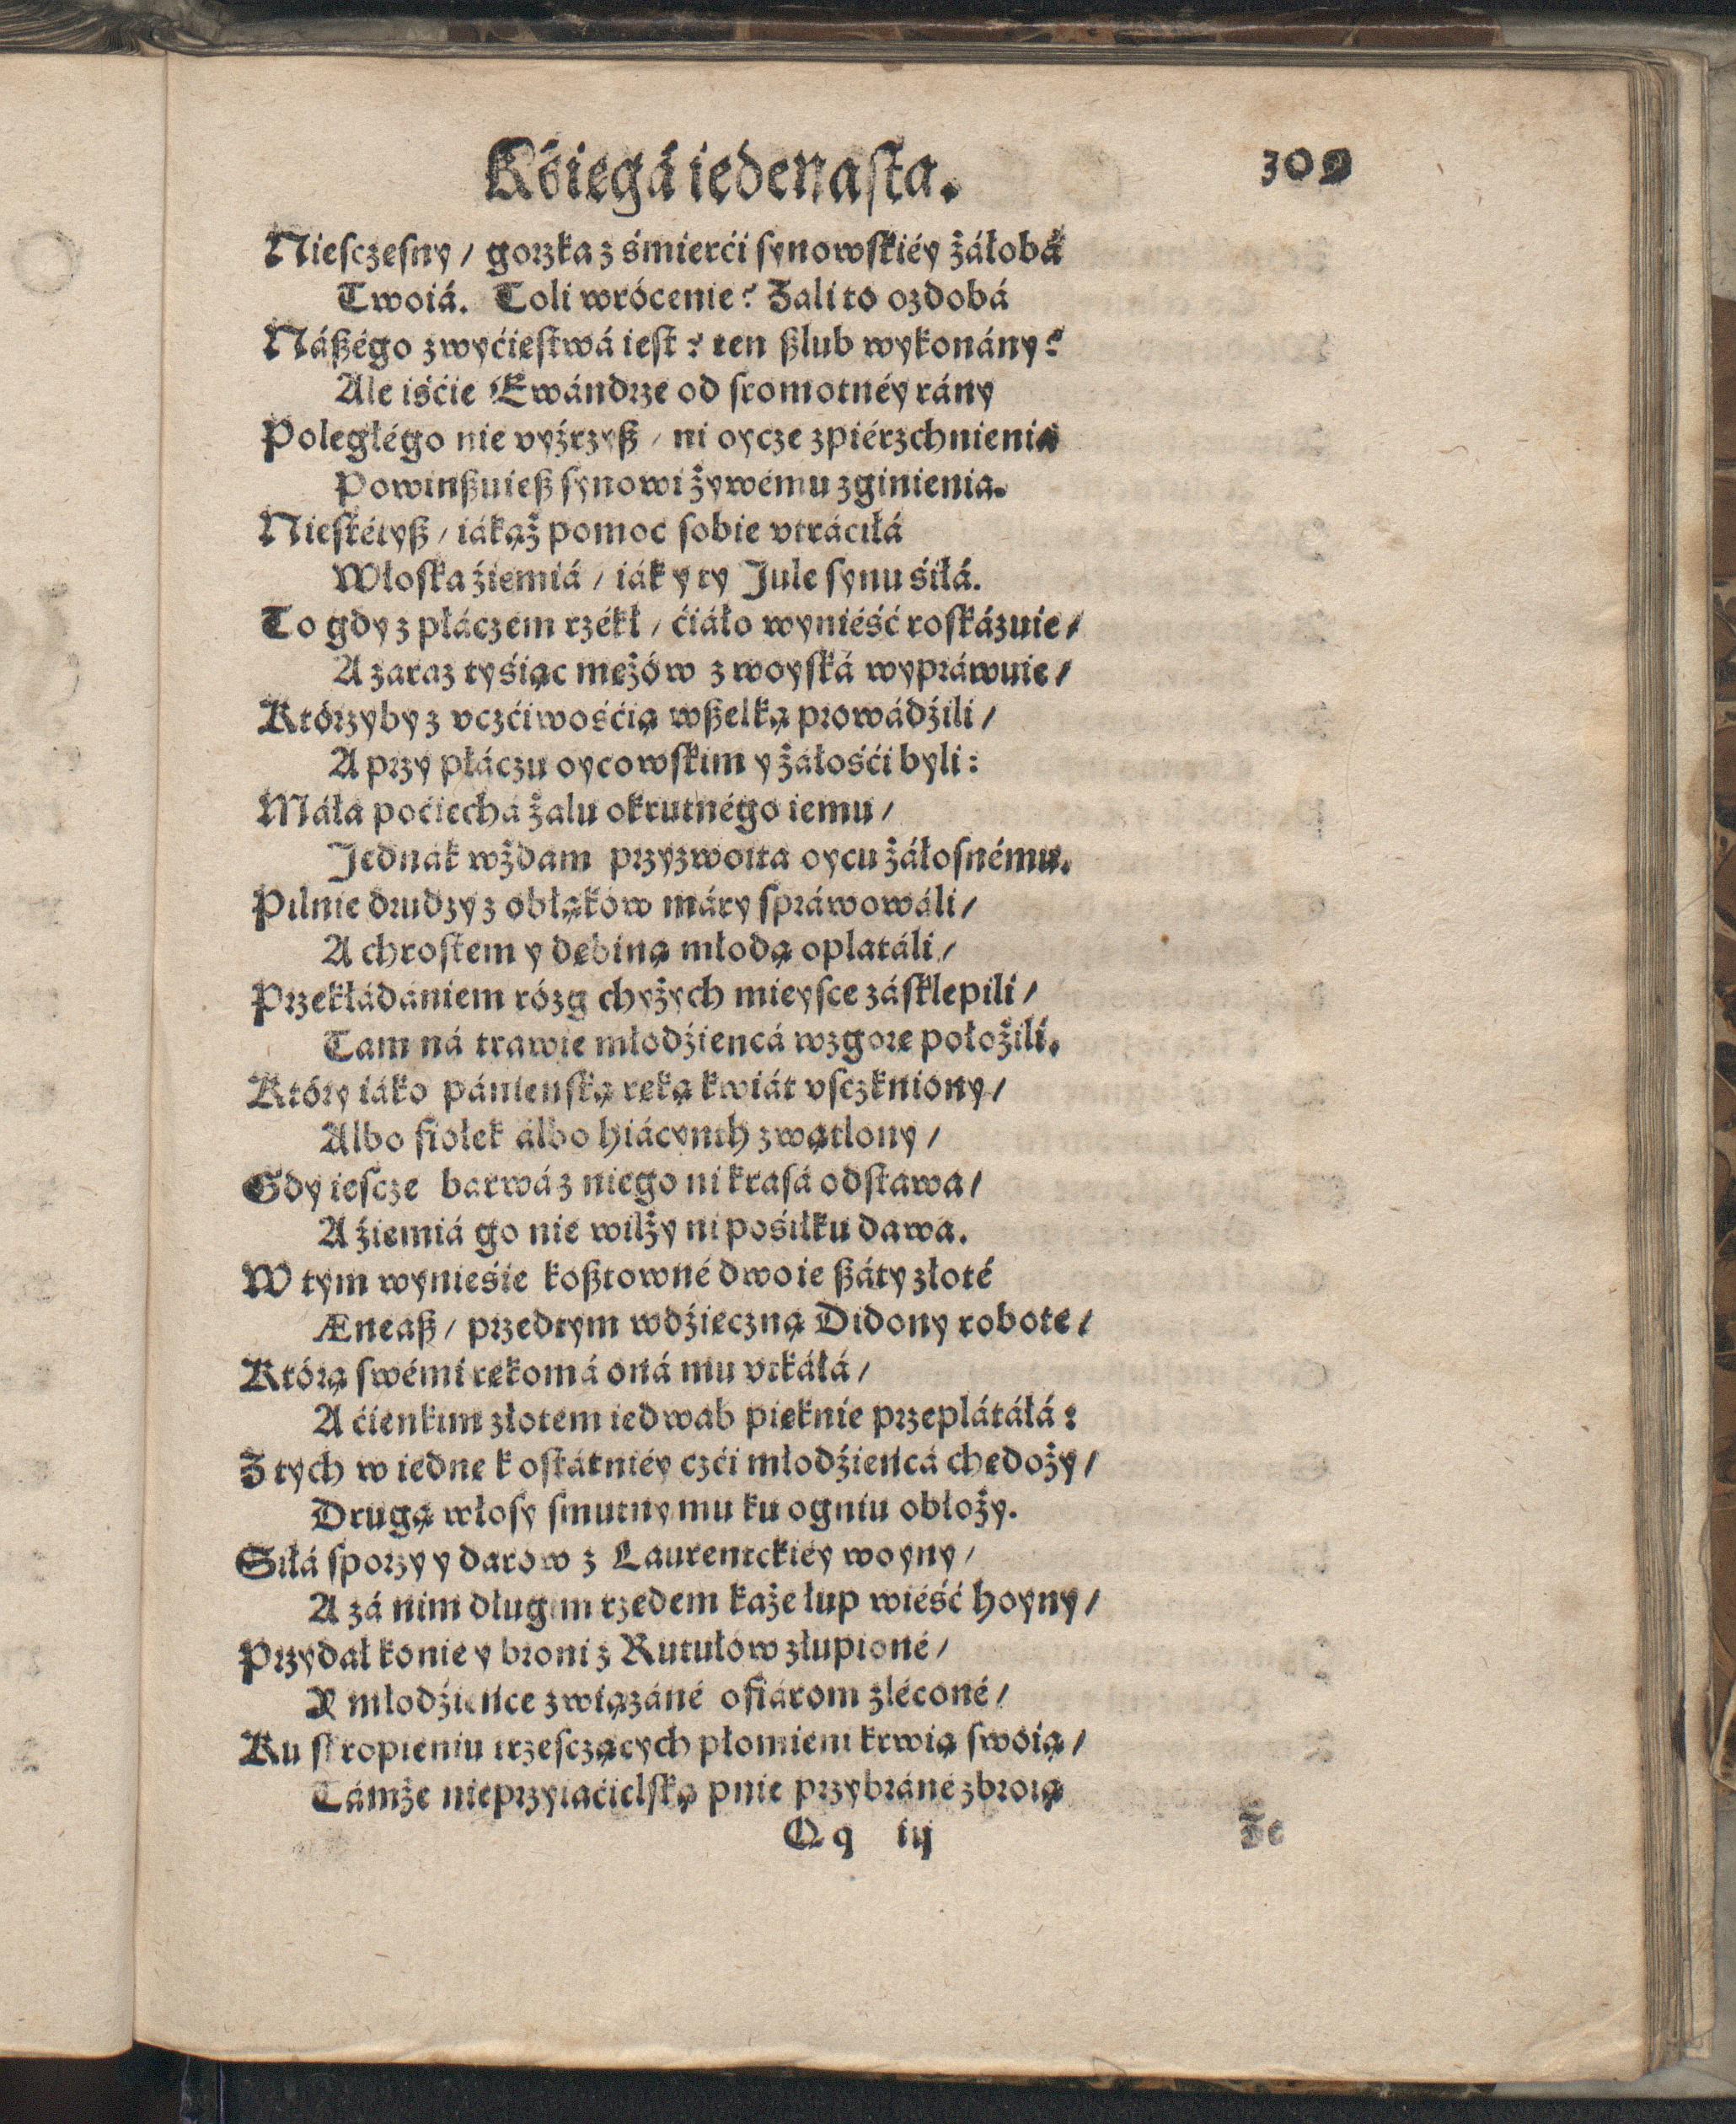 Kśięgá iedenasta. 309
Niesczesny / gorzka z śmierći synowskiéy żáłobá
Twoiá. Toli wrócenie? Zali to ozdobá
Nászégo zwyćięstwá iest? ten szlub wykonány?
Ale iśćie Ewándrze od sromotnéy rány
Poległégo nie vyźrzysz / ni oycze zpiérzchnienia
Powinszuiesz synowi żywému zginienia.
Niestétysz / iákąż pomoc sobie vtráciłá
Włoska źiemiá / iák y ty Jule synu śiłá.
To gdy z płáczem rzékł / ćiáło wyniéść roskázuie /
A zaraz tyśiąc mężów z woyská wypráwuie /
Którzyby z vczćiwośćią wszelką prowádźili /
A przy płáczu oycowskim y żáłośći byli:
Máła poćiechá żalu okrutnégo iemu /
Jednák wżdam przyzwoita oycu żáłosnému.
Pilnie drudzy z obłąków máry spráwowáli /
A chrostem y dębiną młodą oplatáli /
Przekłádániem rózg chyżych mieysce zásklepili /
Tam ná trawie młodźiencá wzgorę położili.
Który iáko pánienską ręką kwiát vsczkniony /
Albo fiołek álbo hiácynth zwątlony /
Gdy iescze barwá z niego ni krasá odstawa /
A źiemiá go nie wilży ni pośiłku dawa.
W tym wynieśie kosztowné dwoie száty złoté
Æneasz / przedtym wdźięczną Didony robotę /
Którą swémi rękomá oná mu vtkáłá /
A ćienkim złotem iedwab pięknie przeplátáłá:
Z tych w iednę k ostátniéy czći młodźieńcá chędoży /
Drugą włosy smutny mu ku ogniu obłoży.
Siłá sporzy y darow z Laurentckiéy woyny /
A zá nim długim rzędem każe łup wiéść hoyny /
Przydał konie y broni z Rutułów złupioné /
Y młodźieńce związáné ofiárom zléconé /
Ku skropieniu trzesczących płomieni krwią swoią /
Támże nieprzyiaćielską pnie przybráné zbroią
Qq iij Że